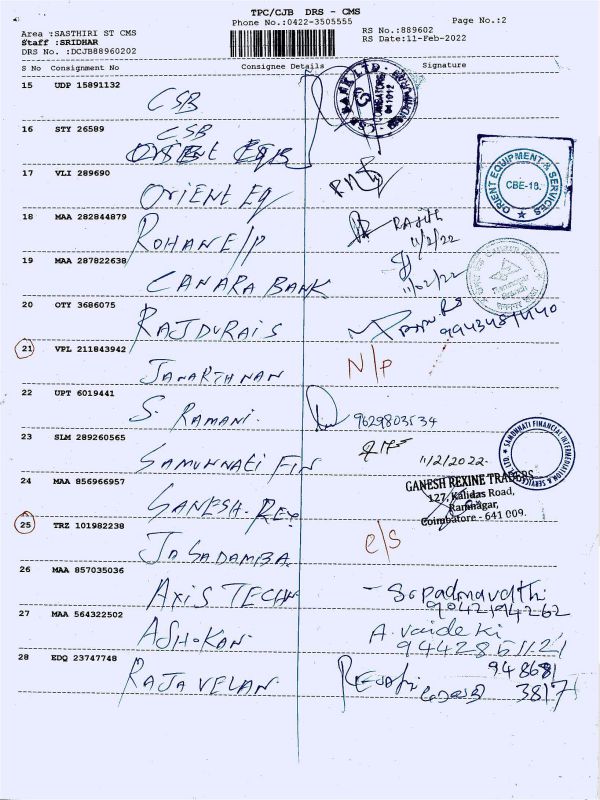 TPC/CJB DRS - CMS
Phone No.:0422-3505555
Page No.:2
Area :SASTHIRI ST CMS
Staff :SRIDHAR
DRS No. :DCJB88960202
RS No.:889602
RS Date:11-Feb-2022
S No Consignment No Consignee Details Signature
15 UDP 15891132
CSB
CSB BANK LTD. COIMBATORE 641012
16 STY 26589
CSB
ORIENT EQ
17 VLI 289690
ORIENT EQ
ORIENT EQUIPMENT & SERVICES
CBE-18.
18 MAA 282844879
ROHAN E/P
RAJITH
11/2/22
19 MAA 287822638
CANARA BANK
11/02/22
20 OTY 3686075
RAJDURAI S
21 VPL 211843942
JANARTHNAN
N/P
22 UPT 6019441
S. RAMANI.
9629803534
23 SLM 289260565
SAMUNNATI FIN
11/2/2022.
SAMUNNATI FINANCIAL INTERMEDIATION & SERVICES PVT. LTD.
24 MAA 856966957
GANESH. REX
GANESH REXINE TRADERS
127, Kalidas Road,
Ramnagar,
Coimbatore - 641 009.
25 TRZ 101982238
JAGADAMBA
e/s
26 MAA 857035036
AXIS TECHN
S. Padmavathi
9042194262
27 MAA 564322502
ASHOKAN
A. Vaideki
9442851121
28 EDQ 23747748
RAJAVELAN
948681
3817